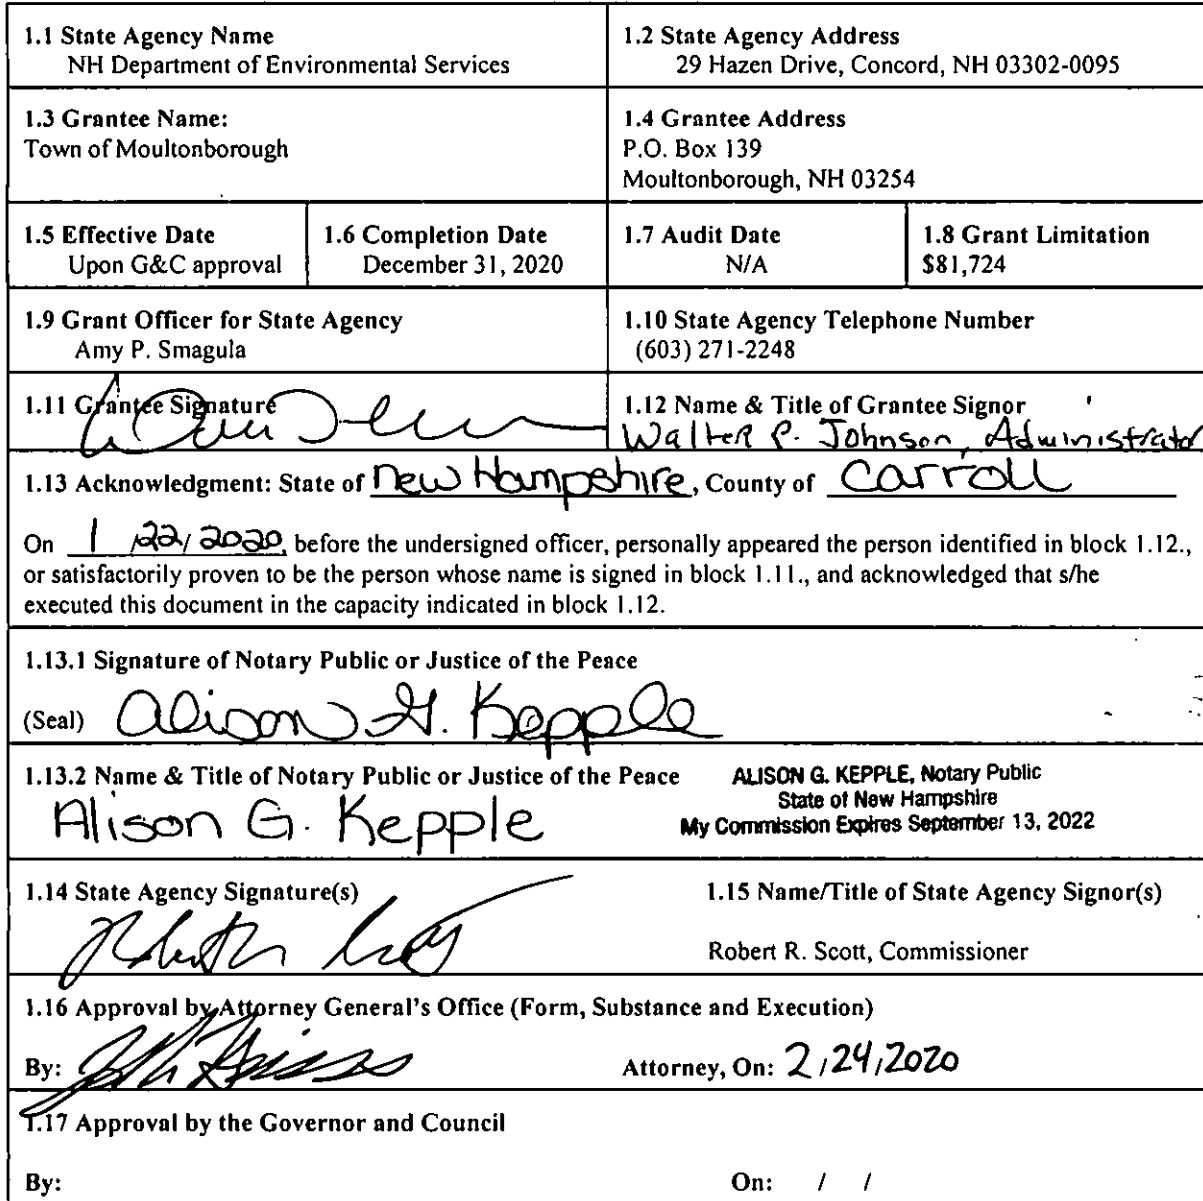 1.1 State Agency Name
NH Department of Environmental Services
1.2 State Agency Address
29 Hazen Drive, Concord, NH 03302-0095
1.3 Grantee Name:
Town of Moultonborough
1.4 Grantee Address
P.O. Box 139
Moultonborough, NH 03254
1.5 Effective Date
Upon G&C approval
1.6 Completion Date
December 31, 2020
1.7 Audit Date
N/A
1.8 Grant Limitation
$81,724
1.9 Grant Officer for State Agency
Amy P. Smagula
1.10 State Agency Telephone Number
(603) 271-2248
1.11 Grantee Signature
1.12 Name & Title of Grantee Signor
Walter P. Johnson, Administrator
1.13 Acknowledgment: State of New Hampshire, County of Carroll
On 1/22/2020, before the undersigned officer, personally appeared the person identified in block 1.12.,
or satisfactorily proven to be the person whose name is signed in block 1.11., and acknowledged that s/he
executed this document in the capacity indicated in block 1.12.
1.13.1 Signature of Notary Public or Justice of the Peace
(Seal) Alison G. Kepple
1.13.2 Name & Title of Notary Public or Justice of the Peace
Alison G. Kepple
ALISON G. KEPPLE, Notary Public
State of New Hampshire
My Commission Expires September 13, 2022
1.14 State Agency Signature(s)
1.15 Name/Title of State Agency Signor(s)
Robert R. Scott, Commissioner
1.16 Approval by Attorney General's Office (Form, Substance and Execution)
By:
Attorney, On: 2/24/2020
1.17 Approval by the Governor and Council
By:
On: / /